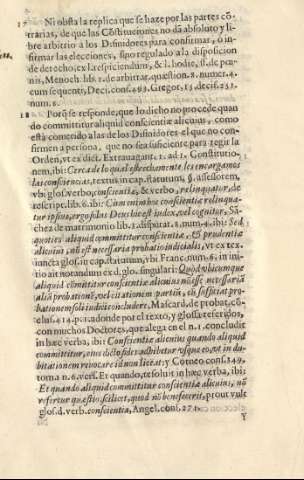 17 Ni obsta la replica que se haze por las partes cõ-
trarias, de que las Cõstituciones no dã absoluto y li-
bre arbitrio a los Difinidores para confirmar, o in-
firmar las elecciones, sino regulado a la disposicion
de derecho, ex l. respiciendum, & l. hodie, ff. de pœ-
nis, Menoch. lib. 1. de arbitrar. quæstion. 8. numer. 4.
cum sequenti, Deci. cons. 483. Gregor. 15. decis. 251.
num. 6.
18 Porq̃ se responde, que lo dicho no procede quan
do committitur aliquid conscientiæ alicuius, como
està cometido a las de los Difinidores el que no con-
firmen a persona, que no sea suficiente para regir la
Orden, vt ex dict. Extrauagant. 1. ad 1. Constitutio-
nem, ibi: Cerca de lo qual estrechamente les encargamos
las consciencias, textus in cap. statutum, §. assessorem,
vbi glos. verbo, conscientiæ, & verbo, relinquatur, de
rescript. lib. 6. ibi: Cum enim hoc conscientiæ relinqua-
tur ipsius, ergo solus Deus hic est iudex, vel cognitor, Sã-
chez de matrimonio lib. 2. disputat. 1. num. 4. ibi: Sed
quoties aliquid committitur conscientiæ, & prudentiæ
alicuius, nõ est necessaria probatio iudicialis, vt ex tex.
iuncta glos. in cap. statutum, vbi Franc. num. 6. in ini-
tio ait notandum ex d. glo. singulari: Quòd vbicumque
aliquid cõmittitur conscientiæ alicuius nõ esse necessariã
aliã probationẽ, vel citationem partiũ, cũ sufficiat pro-
bationem soli iudici concludere, Mascard. de probat. cõ-
clus. 414. p. 1. adonde por el texto, y glossa referidos,
con muchos Doctores, que alega en el n. 1. concludit
in hæc verba, ibi: Conscientiæ alicuius quando aliquid
committitur, eius dicto fides adhibetur vsque eo, vt in du-
bitationem reuocare id non liceat: y Corneo cons. 149.
tom. 2. n. 6. vers. Et quando, resoluit in hæc verba, ibi:
Et quando aliquid committitur conscientiæ alicuius, nõ
refertur quæstio, scilicet, quòd nõ bene fecerit, prout vult
glos. d. verb. conscientia, Angel. cons. 271.
Y